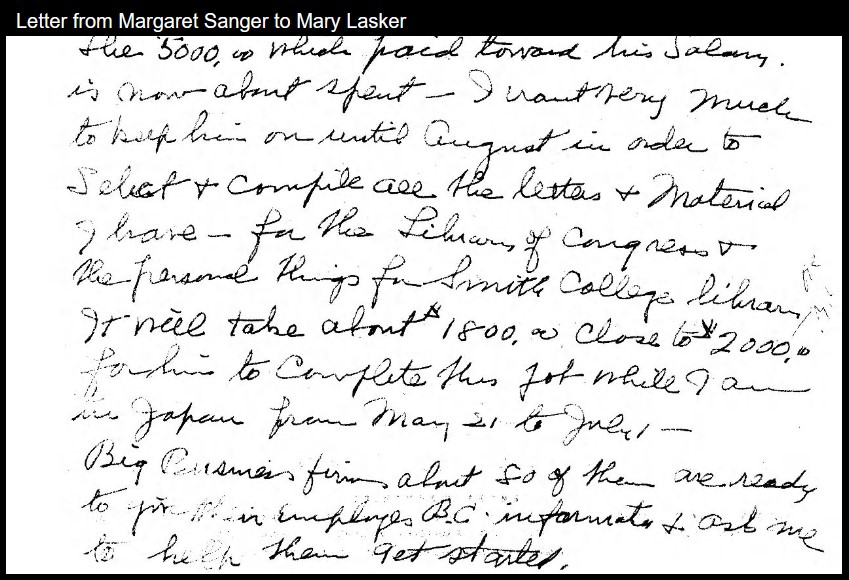 Letter from Margaret Sanger to Mary Lasker
the 5000.00 which paid toward his Salary.
is now about spent – I want very much
to keep him on until August in order to
Select + compile all the letters + Material
I have – for the Library of Congress +
the personal things for Smith College library
It will take about $1800.00 close to $2000.00
for him to complete this job while I am
in Japan from May 21 to July 1 –
Big Business firms about 80 of them are ready
to give their employes B.C. information + ask me
to help them get started.